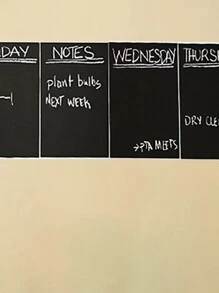 DAY
NOTES
plant bulbs
NEXT WEEK
WEDNESDAY
→PTA MEETS
THURS
DRY CLE